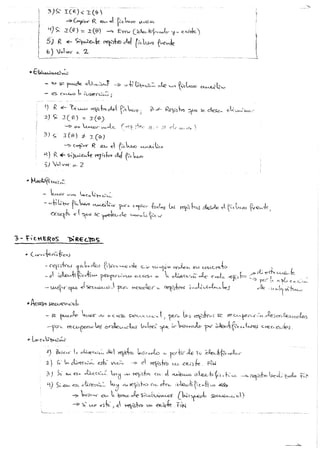 3) Si I(R) < I(Q)
→ Copiar R en el fichero nuevo
4) Si I(R) = I(Q) → Error (identificador ya existe)
5) R ← Siguiente registro del fichero fuente
6) Volver a 2
• Eliminación:
- no se puede eliminar → utilización de un fichero auxiliar
- es como la inserción:
1) R ← Primer registro del fichero, Q ← Registro que se desea eliminar
2) Si I(R) = I(Q)
→ no hacer nada
3) Si I(R) ≠ I(Q)
→ copiar R en el fichero auxiliar
4) R ← Siguiente registro del fichero
5) Volver a 2
• Modificación:
- hacer una
- utilizar fichero auxiliar para copiar todos los registros desde el fichero fuente,
excepto el que se pretende modificar
3- FICHEROS DIRECTOS
• Características
- registros grabados físicamente sin ningún orden en concreto
- el identificador proporciona acceso a la dirección de cada registro
- mejor que el secuencial para acceder a registros individuales
• Acceso secuencial
- se puede hacer un acceso secuencial, pero los registros se recuperarán desordenados
- para recuperarlos ordenados habrá que ir buscando por identificadores crecientes
• Localización
1) Buscar la dirección del registro buscado a partir de su identificador
2) Si la dirección está vacía → el registro no existe FIN
3) Si en esa dirección hay un registro con el mismo identificador → registro localizado FIN
4) Si en esa dirección hay un registro con otro identificador
→ buscar en la zona de sinónimos (búsqueda secuencial)
→ Si no está, el registro no existe FIN